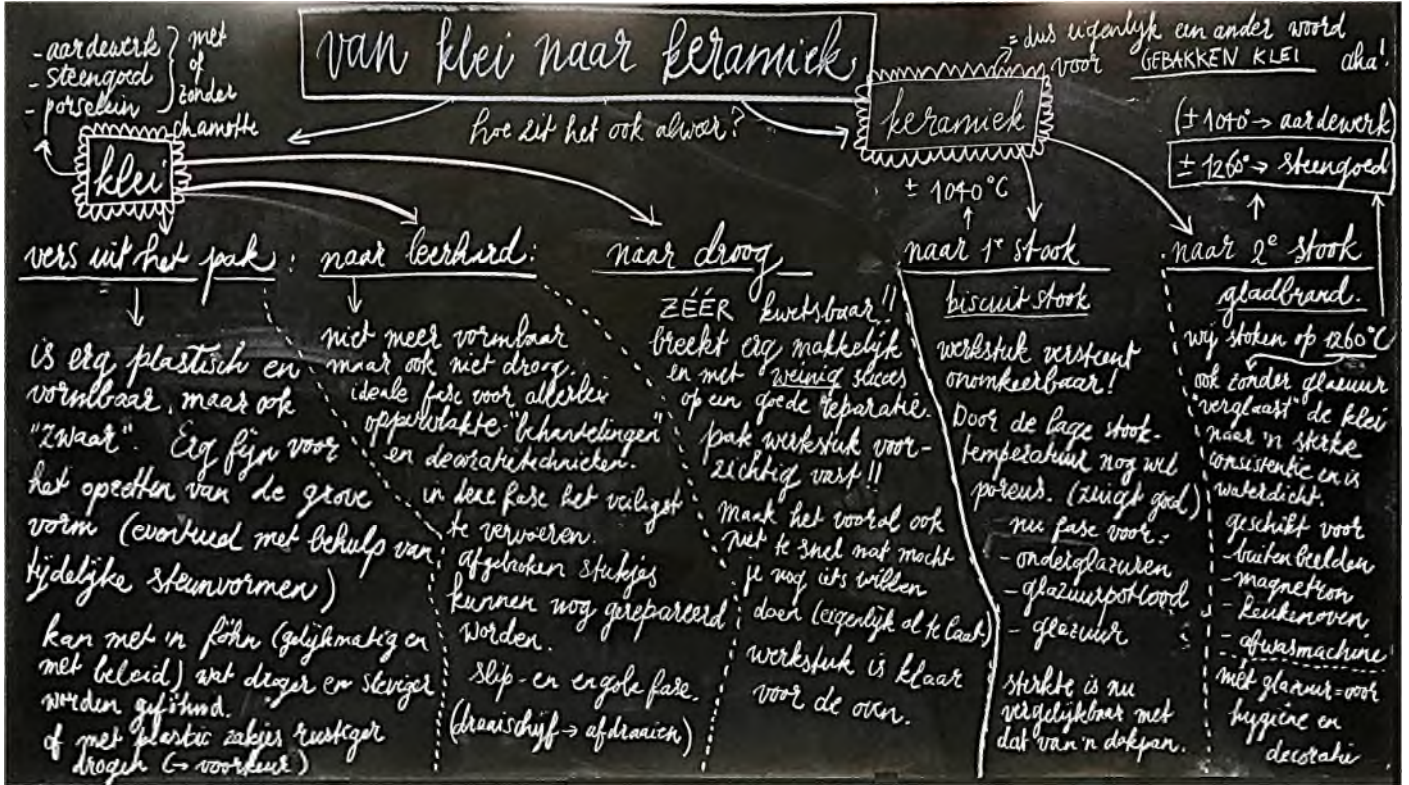 van klei naar keramiek
hoe zit het ook alweer?
- aardewerk
- steengoed
- porselein
met
of
zonder
chamotte
klei
= dus eigenlijk een ander woord
voor GEBAKKEN KLEI aha!
keramiek
vers uit het pak:
is erg plastisch en
vormbaar, maar ook
"zwaar". Erg fijn voor
het opzetten van de grove
vorm (eventueel met behulp van
tijdelijke steunvormen)
kan met 'n föhn (gelijkmatig en
met beleid) wat droger en steviger
worden geföhnd.
of met plastic zakjes rustiger
drogen (→ voorkeur)
naar leerhard:
niet meer vormbaar
maar ook niet droog.
ideale fase voor allerlei
oppervlakte-"behandelingen"
en decoratietechnieken.
in deze fase het veiligst
te vervoeren.
afgebroken stukjes
kunnen nog gerepareerd
worden.
slip- en engobe fase.
(draaischijf → afdraaien)
naar droog
ZÉÉR kwetsbaar!!
breekt erg makkelijk
en met weinig succes
op een goede reparatie.
pak werkstuk voor-
zichtig vast!!
Maak het vooral ook
niet te snel nat mocht
je nog iets willen
doen (eigenlijk al te laat)
werkstuk is klaar
voor de oven.
± 1040°C
naar 1e stook
biscuit stook
werkstuk versteent
onomkeerbaar!
Door de lage stook-
temperatuur nog wel
poreus. (zuigt goed)
nu fase voor:
- onderglazuren
- glazuurpotlood
- glazuur
sterkte is nu
vergelijkbaar met
dat van 'n dakpan.
(± 1040° → aardewerk)
± 1260° → steengoed
naar 2e stook
gladbrand.
wij stoken op 1260°C
ook zonder glazuur
"verglaast" de klei
naar 'n sterke
consistentie en is
waterdicht.
geschikt voor
- buitenbeelden
- magnetron
- keukenoven
- afwasmachine
mét glazuur = voor
hygiëne en
decoratie